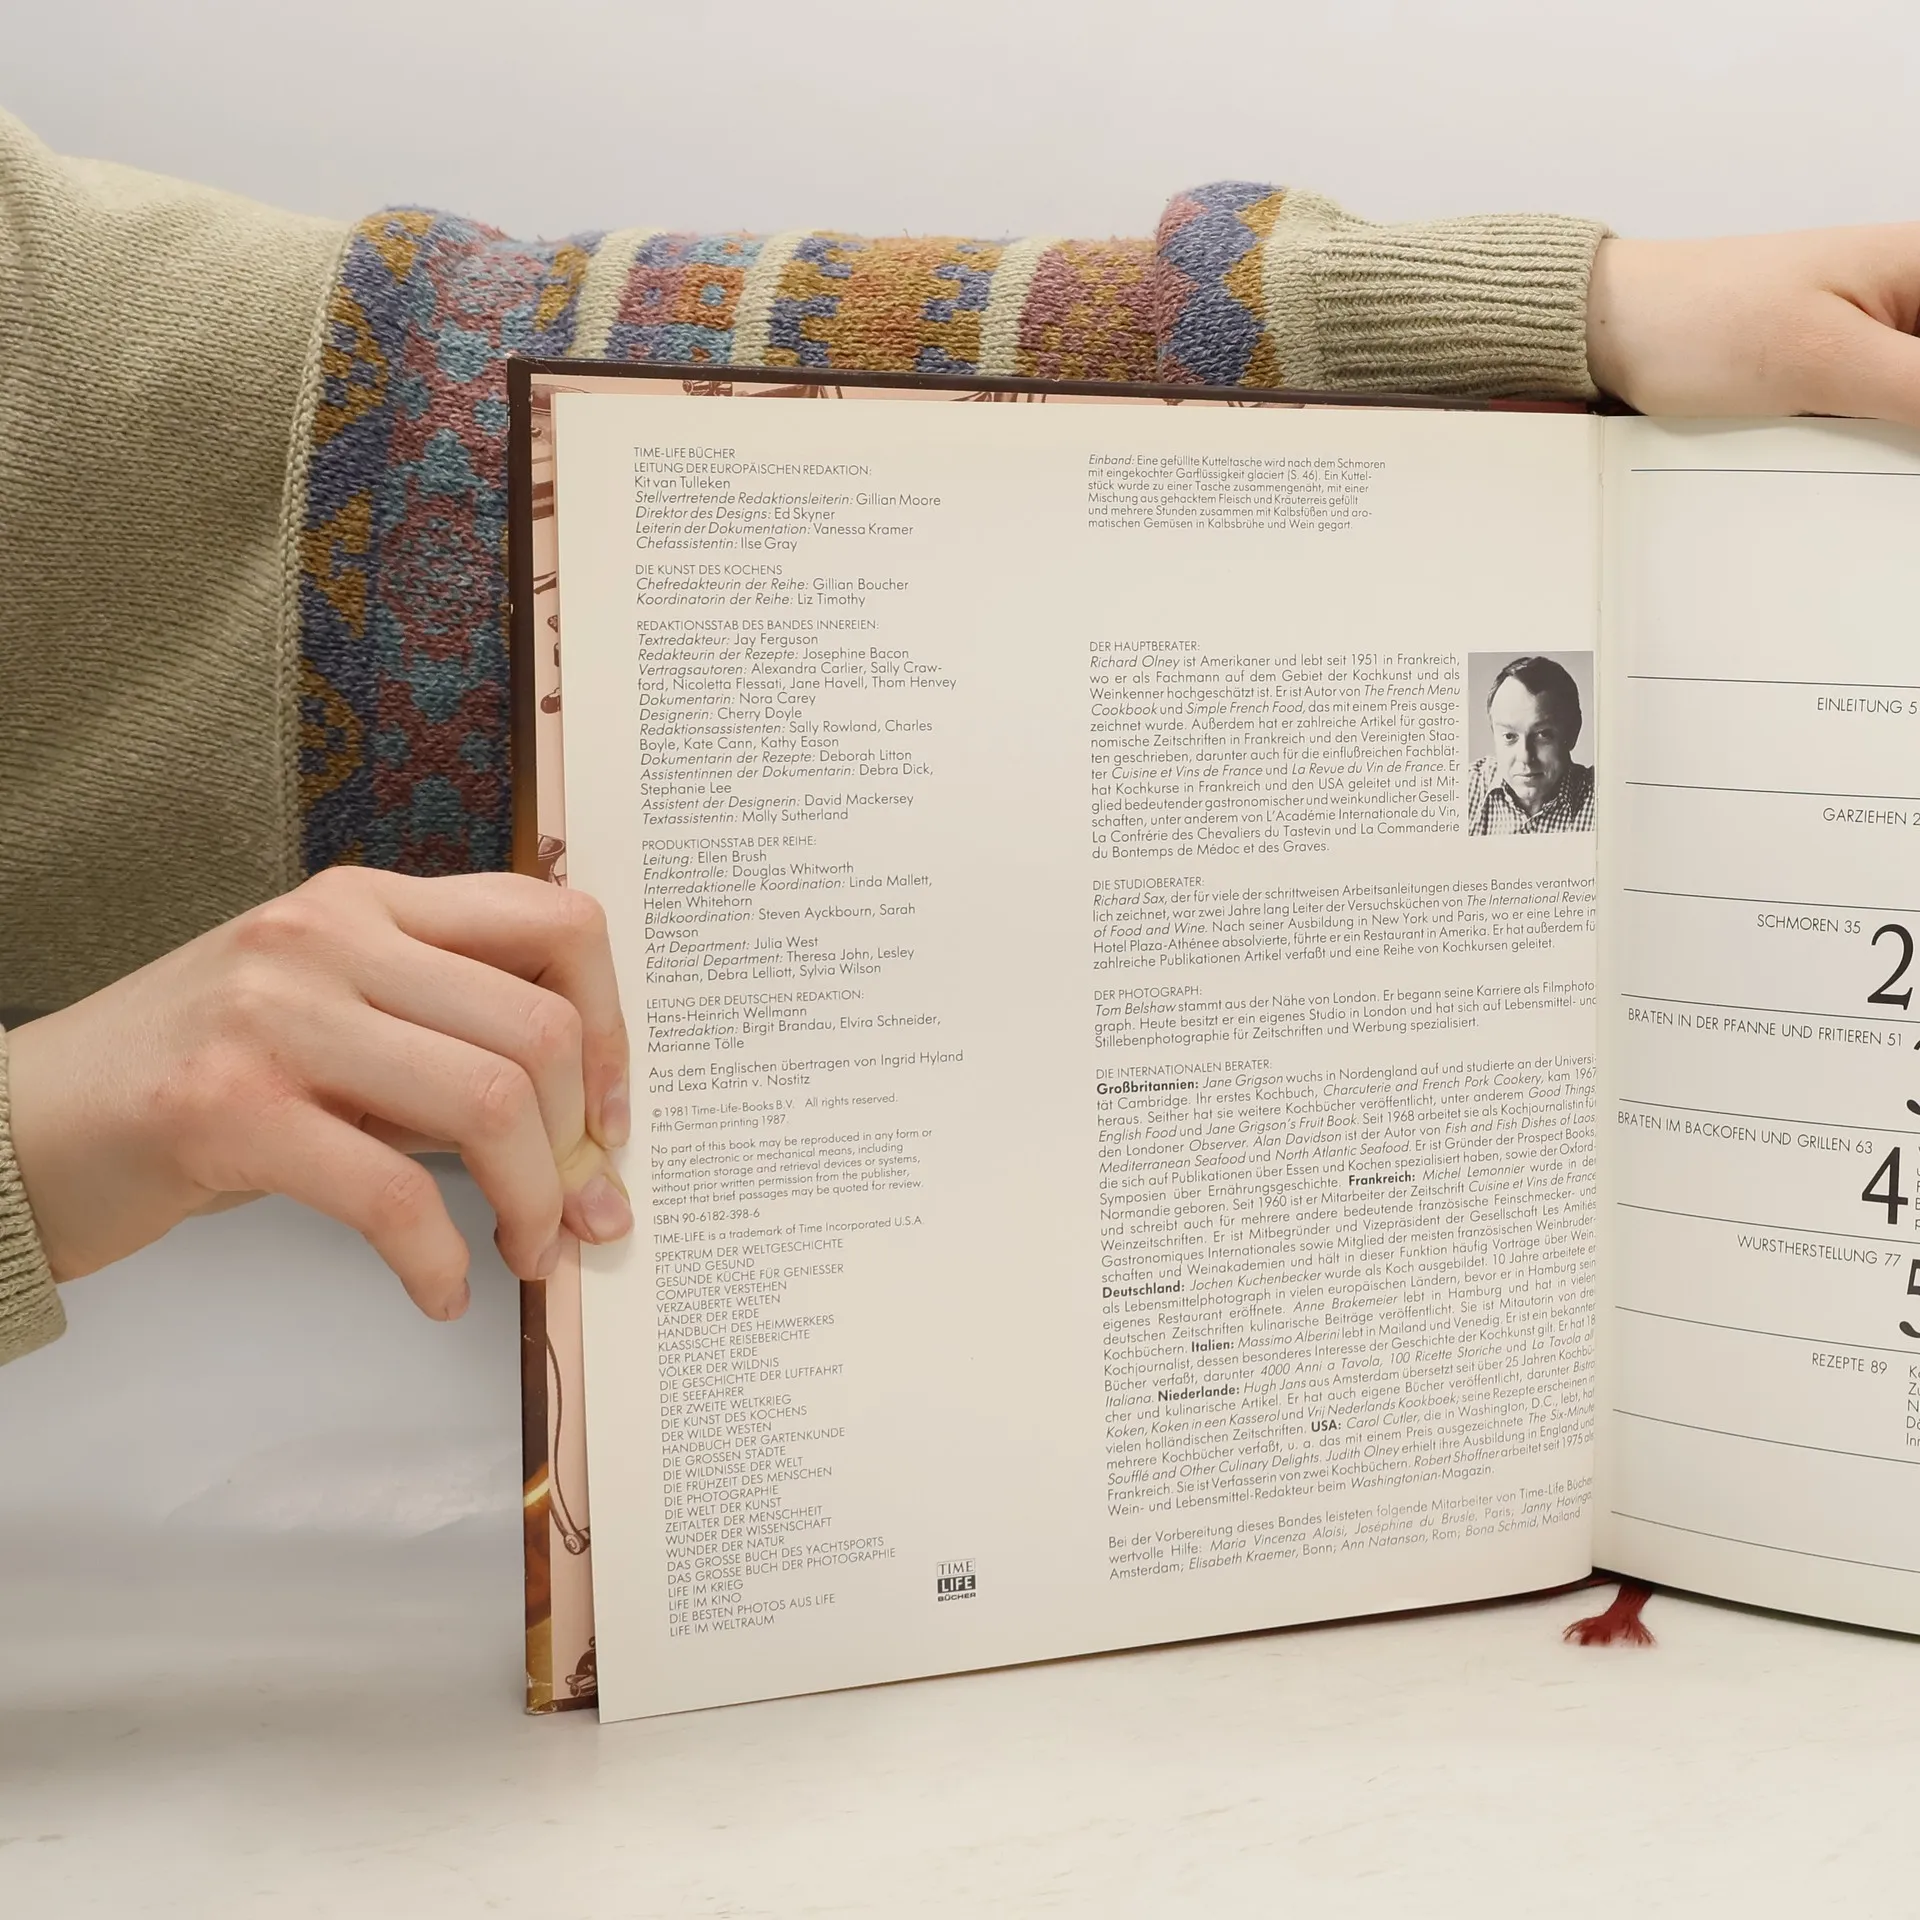 TIME-LIFE BÜCHER
LEITUNG DER EUROPÄISCHEN REDAKTION:
Kit van Tulleken
Stellvertretende Redaktionsleiterin: Gillian Moore
Direktor des Designs: Ed Skyner
Leiterin der Dokumentation: Vanessa Kramer
Chefassistentin: Ilse Gray
DIE KUNST DES KOCHENS
Chefredakteurin der Reihe: Gillian Boucher
Koordinatorin der Reihe: Liz Timothy
REDAKTIONSSTAB DES BANDES INNEREIEN:
Textredakteur: Jay Ferguson
Redakteurin der Rezepte: Josephine Bacon
Vertragsautoren: Alexandra Carlier, Sally Craw-
ford, Nicoletta Flessati, Jane Havell, Thom Henvey
Dokumentarin: Nora Carey
Designerin: Cherry Doyle
Redaktionsassistenten: Sally Rowland, Charles
Boyle, Kate Cann, Kathy Eason
Dokumentarin der Rezepte: Deborah Litton
Assistentinnen der Dokumentarin: Debra Dick,
Stephanie Lee
Assistent der Designerin: David Mackersey
Textassistentin: Molly Sutherland
PRODUKTIONSSTAB DER REIHE:
Leitung: Ellen Brush
Endkontrolle: Douglas Whitworth
Interredaktionelle Koordination: Linda Mallett,
Helen Whitehorn
Bildkoordination: Steven Ayckbourn, Sarah
Dawson
Art Department: Julia West
Editorial Department: Theresa John, Lesley
Kinahan, Debra Lelliott, Sylvia Wilson
LEITUNG DER DEUTSCHEN REDAKTION:
Hans-Heinrich Wellmann
Textredaktion: Birgit Brandau, Elvira Schneider,
Marianne Tölle
Aus dem Englischen übertragen von Ingrid Hyland
und Lexa Katrin v. Nostitz
© 1981 Time-Life-Books B.V. All rights reserved.
Fifth German printing 1987.
No part of this book may be reproduced in any form or
by any electronic or mechanical means, including
information storage and retrieval devices or systems,
without prior written permission from the publisher,
except that brief passages may be quoted for review.
ISBN 90-6182-398-6
TIME-LIFE is a trademark of Time Incorporated U.S.A.
SPEKTRUM DER WELTGESCHICHTE
FIT UND GESUND
GESUNDE KÜCHE FÜR GENIESSER
COMPUTER VERSTEHEN
VERZAUBERTE WELTEN
LÄNDER DER ERDE
HANDBUCH DES HEIMWERKERS
KLASSISCHE REISEBERICHTE
DER PLANET ERDE
VÖLKER DER WILDNIS
DIE GESCHICHTE DER LUFTFAHRT
DIE SEEFAHRER
DER ZWEITE WELTKRIEG
DIE KUNST DES KOCHENS
DER WILDE WESTEN
HANDBUCH DER GARTENKUNDE
DIE GROSSEN STÄDTE
DIE WILDNISSE DER WELT
DIE FRÜHZEIT DES MENSCHEN
DIE PHOTOGRAPHIE
DIE WELT DER KUNST
ZEITALTER DER MENSCHHEIT
WUNDER DER WISSENSCHAFT
WUNDER DER NATUR
DAS GROSSE BUCH DES YACHTSPORTS
DAS GROSSE BUCH DER PHOTOGRAPHIE
LIFE IM KRIEG
LIFE IM KINO
DIE BESTEN PHOTOS AUS LIFE
LIFE IM WELTRAUM
TIME
LIFE
BÜCHER
Einband: Eine gefüllte Kutteltasche wird nach dem Schmoren
mit eingekochter Garflüssigkeit glaciert (S. 46). Ein Kuttel-
stück wurde zu einer Tasche zusammengenäht, mit einer
Mischung aus gehacktem Fleisch und Kräuterreis gefüllt
und mehrere Stunden zusammen mit Kalbsfüßen und aro-
matischen Gemüsen in Kalbsbrühe und Wein gegart.
DER HAUPTBERATER:
Richard Olney ist Amerikaner und lebt seit 1951 in Frankreich,
wo er als Fachmann auf dem Gebiet der Kochkunst und als
Weinkenner hochgeschätzt ist. Er ist Autor von The French Menu
Cookbook und Simple French Food, das mit einem Preis ausge-
zeichnet wurde. Außerdem hat er zahlreiche Artikel für gastro-
nomische Zeitschriften in Frankreich und den Vereinigten Staa-
ten geschrieben, darunter auch für die einflußreichen Fachblät-
ter Cuisine et Vins de France und La Revue du Vin de France. Er
hat Kochkurse in Frankreich und den USA geleitet und ist Mit-
glied bedeutender gastronomischer und weinkundlicher Gesell-
schaften, unter anderem von L'Académie Internationale du Vin,
La Confrérie des Chevaliers du Tastevin und La Commanderie
du Bontemps de Médoc et des Graves.
DIE STUDIOBERATER:
Richard Sax, der für viele der schrittweisen Arbeitsanleitungen dieses Bandes verantwort
lich zeichnet, war zwei Jahre lang Leiter der Versuchsküchen von The International Review
of Food and Wine. Nach seiner Ausbildung in New York und Paris, wo er eine Lehre im
Hotel Plaza-Athénee absolvierte, führte er ein Restaurant in Amerika. Er hat außerdem fü
zahlreiche Publikationen Artikel verfaßt und eine Reihe von Kochkursen geleitet.
DER PHOTOGRAPH:
Tom Belshaw stammt aus der Nähe von London. Er begann seine Karriere als Filmphoto
graph. Heute besitzt er ein eigenes Studio in London und hat sich auf Lebensmittel- und
Stillebenphotographie für Zeitschriften und Werbung spezialisiert.
DIE INTERNATIONALEN BERATER:
Großbritannien: Jane Grigson wuchs in Nordengland auf und studierte an der Universi-
tät Cambridge. Ihr erstes Kochbuch, Charcuterie and French Pork Cookery, kam 1967
heraus. Seither hat sie weitere Kochbücher veröffentlicht, unter anderem Good Things,
English Food und Jane Grigson's Fruit Book. Seit 1968 arbeitet sie als Kochjournalistin für
den Londoner Observer. Alan Davidson ist der Autor von Fish and Fish Dishes of Laos,
Mediterranean Seafood und North Atlantic Seafood. Er ist Gründer der Prospect Books,
die sich auf Publikationen über Essen und Kochen spezialisiert haben, sowie der Oxford-
Symposien über Ernährungsgeschichte. Frankreich: Michel Lemonnier wurde in der
Normandie geboren. Seit 1960 ist er Mitarbeiter der Zeitschrift Cuisine et Vins de France
und schreibt auch für mehrere andere bedeutende französische Feinschmecker- und
Weinzeitschriften. Er ist Mitbegründer und Vizepräsident der Gesellschaft Les Amitiés
Gastronomiques Internationales sowie Mitglied der meisten französischen Weinbruder-
schaften und Weinakademien und hält in dieser Funktion häufig Vorträge über Wein.
Deutschland: Jochen Kuchenbecker wurde als Koch ausgebildet. 10 Jahre arbeitete er
als Lebensmittelphotograph in vielen europäischen Ländern, bevor er in Hamburg sein
eigenes Restaurant eröffnete. Anne Brakemeier lebt in Hamburg und hat in vielen
deutschen Zeitschriften kulinarische Beiträge veröffentlicht. Sie ist Mitautorin von drei
Kochbüchern. Italien: Massimo Alberini lebt in Mailand und Venedig. Er ist ein bekannter
Kochjournalist, dessen besonderes Interesse der Geschichte der Kochkunst gilt. Er hat 18
Bücher verfaßt, darunter 4000 Anni a Tavola, 100 Ricette Storiche und La Tavola all'
Italiana. Niederlande: Hugh Jans aus Amsterdam übersetzt seit über 25 Jahren Kochbü-
cher und kulinarische Artikel. Er hat auch eigene Bücher veröffentlicht, darunter Bistro
Koken, Koken in een Kasserol und Vrij Nederlands Kookboek; seine Rezepte erscheinen in
vielen holländischen Zeitschriften. USA: Carol Cutler, die in Washington, D.C., lebt, hat
mehrere Kochbücher verfaßt, u. a. das mit einem Preis ausgezeichnete The Six-Minute
Soufflé and Other Culinary Delights. Judith Olney erhielt ihre Ausbildung in England und
Frankreich. Sie ist Verfasserin von zwei Kochbüchern. Robert Shoffner arbeitet seit 1975 als
Wein- und Lebensmittel-Redakteur beim Washingtonian-Magazin.
Bei der Vorbereitung dieses Bandes leisteten folgende Mitarbeiter von Time-Life Bücher
wertvolle Hilfe: Maria Vincenza Aloisi, Joséphine du Brusle, Paris; Janny Hovinga,
Amsterdam; Elisabeth Kraemer, Bonn; Ann Natanson, Rom; Bona Schmid, Mailand
EINLEITUNG 5
GARZIEHEN 2
SCHMOREN 35 2
BRATEN IN DER PFANNE UND FRITIEREN 51
BRATEN IM BACKOFEN UND GRILLEN 63 4
WURSTHERSTELLUNG 77 5
REZEPTE 89